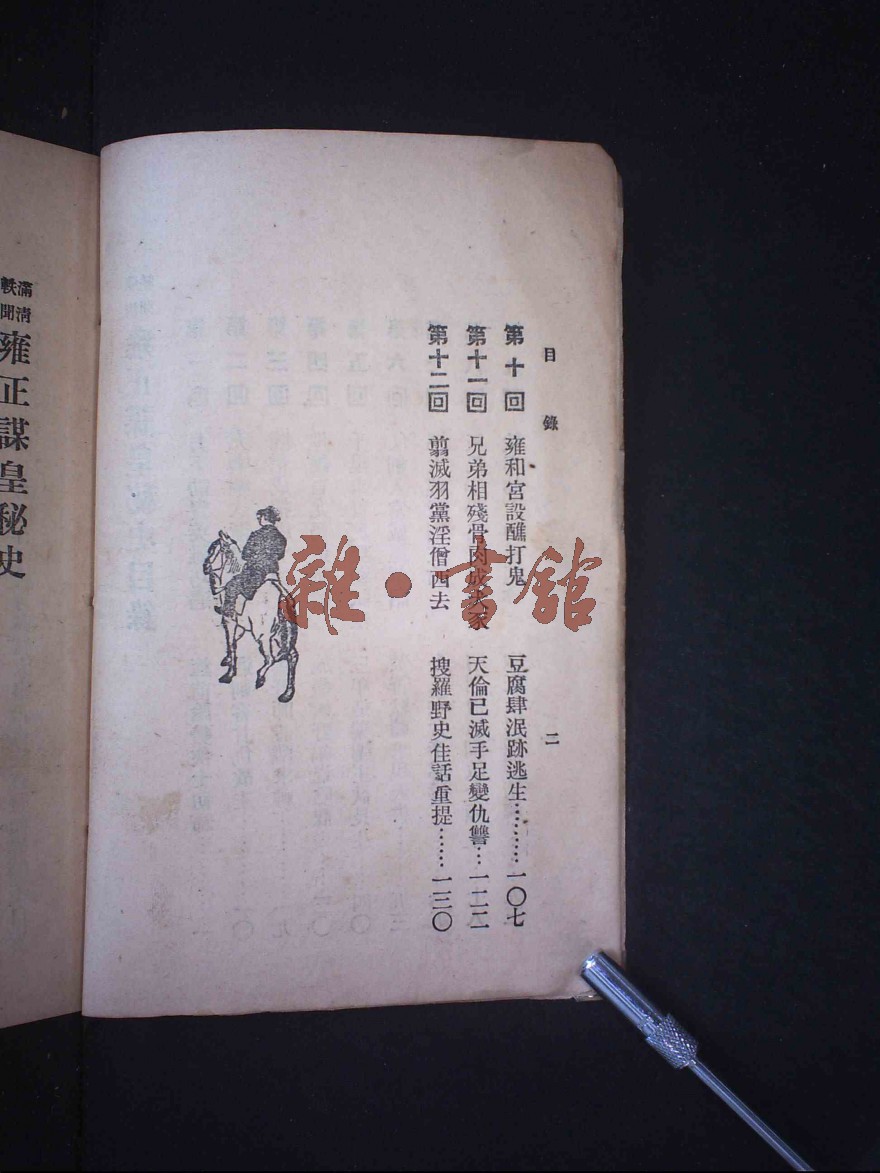 目錄 二
第十回 雍和宮設醮打鬼 豆腐肆泯跡逃生………一〇七
第十一回 兄弟相殘骨肉成大冢 天倫已滅手足變仇讐…一二二
第十二回 翦滅羽黨淫僧西去 搜羅野史佳話重提……一三〇
滿清軼聞
雍正謀皇秘史
雜·書館